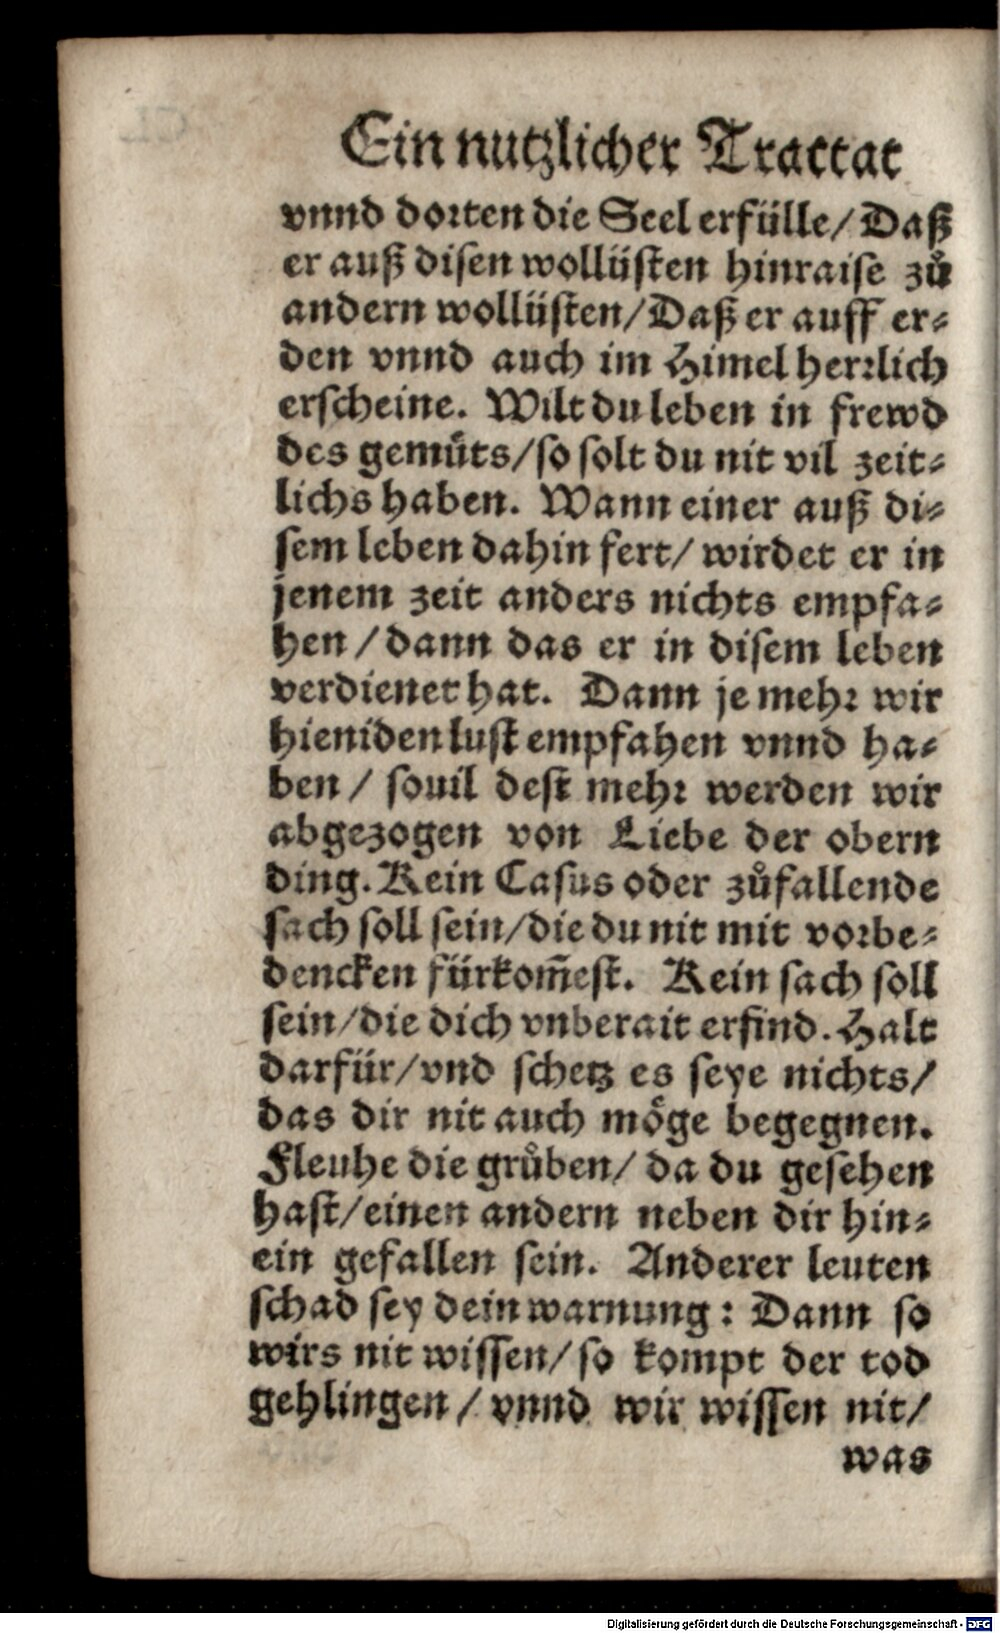 Ein nutzlicher Tractat
vnnd dorten die Seel erfülle/ Daß
er auß disen wollüsten hinraise zů
andern wollüsten/ Daß er auff er-
den vnnd auch im Himel herrlich
erscheine. Wilt du leben in frewd
des gemüts/ so solt du nit vil zeit-
lichs haben. Wann einer auß di-
sem leben dahin fert/ wirdet er in
jenem zeit anders nichts empfa-
hen / dann das er in disem leben
verdienet hat. Dann je mehr wir
hieniden lust empfahen vnnd ha-
ben / souil dest mehr werden wir
abgezogen von Liebe der obern
ding. Kein Casus oder zůfallende
sach soll sein/ die du nit mit vorbe-
dencken fürkom̃est. Kein sach soll
sein/ die dich vnberait erfind. Halt
darfür/ vnd schetz es seye nichts/
das dir nit auch möge begegnen.
Fleuhe die grůben/ da du gesehen
hast/ einen andern neben dir hin-
ein gefallen sein. Anderer leuten
schad sey dein warnung: Dann so
wirs nit wissen/ so kompt der tod
gehlingen / vnnd wir wissen nit/
was
Digitalisierung gefördert durch die Deutsche Forschungsgemeinschaft - DFG